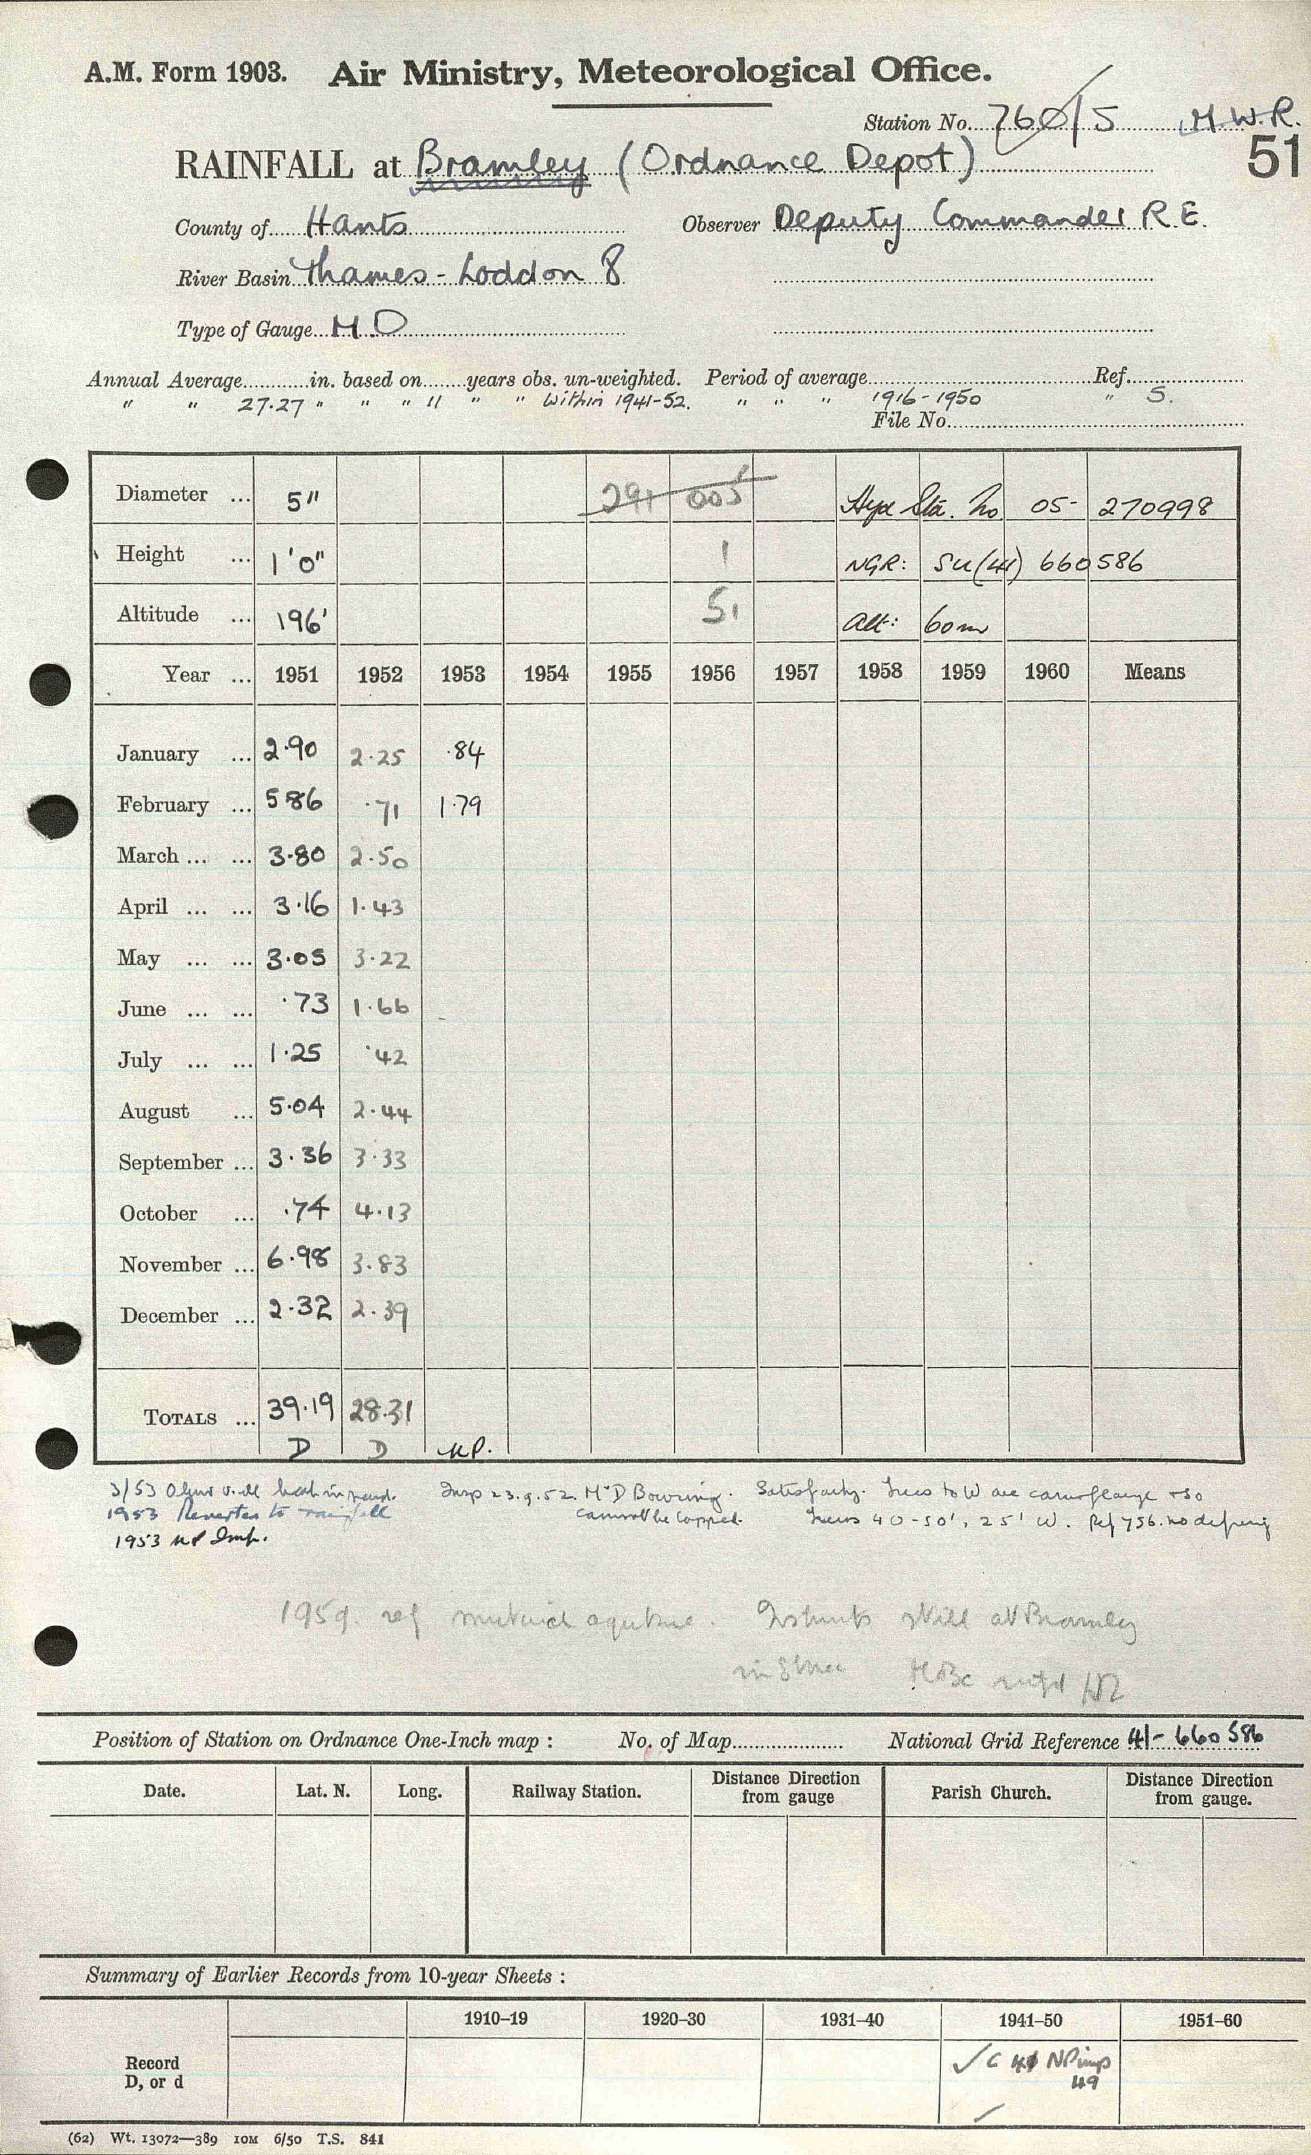 A.M. Form 1903. Air Ministry, Meteorological Office.
Station No. 760/5 M.W.R.
51
RAINFALL at Bramley (Ordnance Depot)
County of Hants Observer Deputy Commander R.E.
River Basin Thames - Loddon 8
Type of Gauge M.O
Annual Average in. based on years obs. un-weighted. Period of average Ref.
" " 27.27 " " " 11 " " Within 1941-52. " " " 1916-1950 " S.
File No.
Diameter ... 5" 291 005 Hyd Sta. No 05- 270998
Height ... 1'0" 1 NGR: SU(41) 660586
Altitude ... 196' 51 Alt: 60m
Year ... 1951 1952 1953 1954 1955 1956 1957 1958 1959 1960 Means
January ... 2.90 2.25 .84
February ... 5 86 .71 1.79
March ... ... 3.80 2.50
April ... ... 3.16 1.43
May ... ... 3.05 3.22
June ... ... .73 1.66
July ... ... 1.25 .42
August ... 5.04 2.44
September ... 3.36 3.33
October ... .74 4.13
November ... 6.98 3.83
December ... 2.32 2.39
TOTALS ... 39.19 28.31
D D NP.
3/53 Insp 23.9.52. Mr D Bowring. Satisfactory. Trees to W are camouflage + so
1953 Reverts to rainfall cannot be lopped. Trees 40-50', 25' W. Ref 756.
1953 NP Imp.
1959. ref still at Bramley
Position of Station on Ordnance One-Inch map : No. of Map National Grid Reference 41- 660 586
Date. Lat. N. Long. Railway Station. Distance from gauge Direction Parish Church. Distance from gauge. Direction
Summary of Earlier Records from 10-year Sheets :
1910–19 1920–30 1931–40 1941–50 1951–60
Record D, or d ✓ C 41 NP imp
49
(62) Wt. 13072—389 10M 6/50 T.S. 841